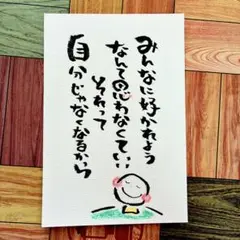 みんなに好かれよう
なんて思わなくていい
それって
自分じゃなくなるから